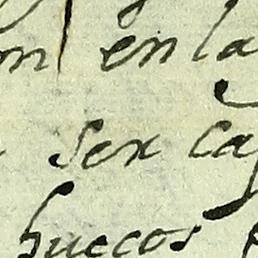 en la
ser ca
huecos